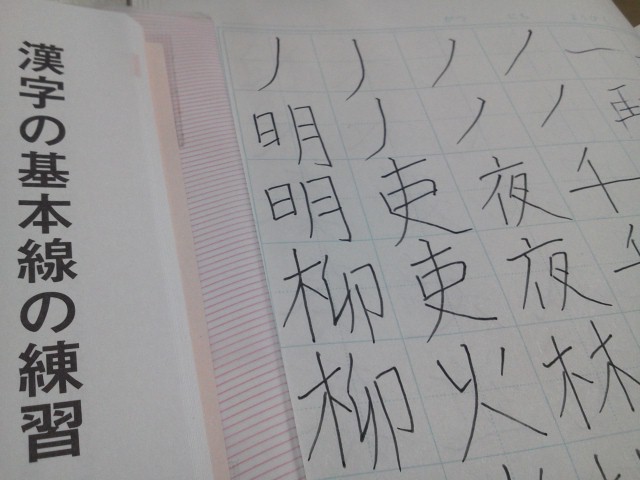 漢字の基本線の練習
ノ ノ ノ ノ 一
明 ノ ノ ノ
明 吏 夜 千
柳 吏 夜 千
柳 火 林